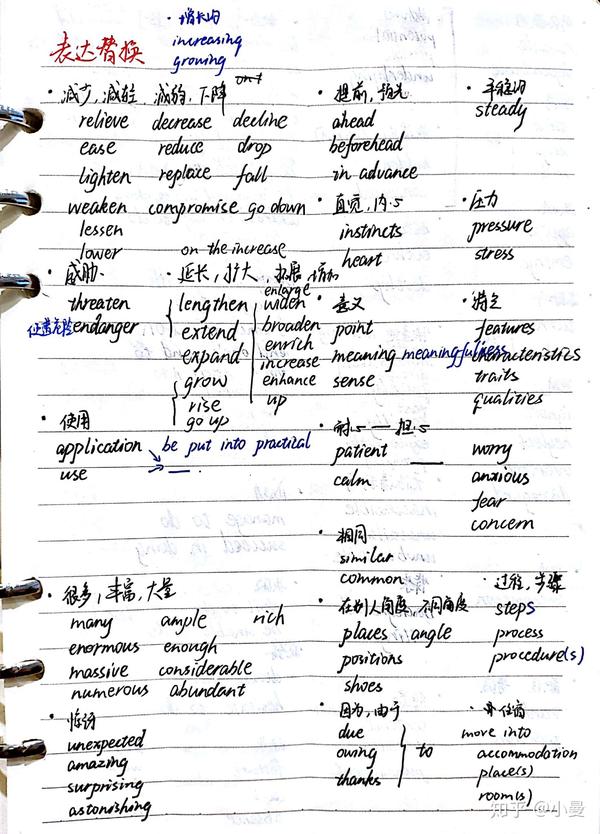 表达替换
· 增长的
increasing
growing
· 减少, 减轻 减弱, 下降
relieve decrease decline
ease reduce drop
lighten replace fall
weaken compromise go down
lessen
lower
on the increase
· 威胁
threaten
endanger
· 延长, 扩大, 拓展
lengthen
extend
expand
grow
rise
go up
enlarge
widen
broaden
enrich
increase
enhance
up
· 使用
application be put into practical
use
· 很多, 丰富, 大量
many ample rich
enormous enough
massive considerable
numerous abundant
· 惊讶
unexpected
amazing
surprising
astonishing
· 提前, 预先
ahead
beforehead
in advance
· 直觉, 内心
instincts
heart
· 意义
point
meaning meaningfulness
sense
· 耐心 — 担心
patient
calm
· 相同
similar
common
· 在别人角度, 不同角度
places angle
positions
shoes
· 因为, 由于
due
owing
thanks
to
· 平稳的
steady
· 压力
pressure
stress
· 特点
features
characteristics
traits
qualities
worry
anxious
fear
concern
· 过程, 步骤
steps
process
procedure(s)
move into
accommodation
place(s)
room(s)
知乎 @小曼